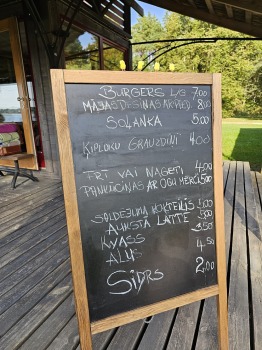 BURGERS L/G 7,00
MĀJAS DESIŅAS AR PIED. 8,00
SOĻANKA 5,00
ĶIPLOKU GRAUZDIŅI 4,00
FRĪ VAI NAGETI 4,00
PANKŪCIŅAS AR OGU MĒRCI 5,00
SALDĒJUMA KOKTEILIS 4,00
AUKSTĀ LATTE
KVASS
ALUS 4,50
SIDRS 2,00